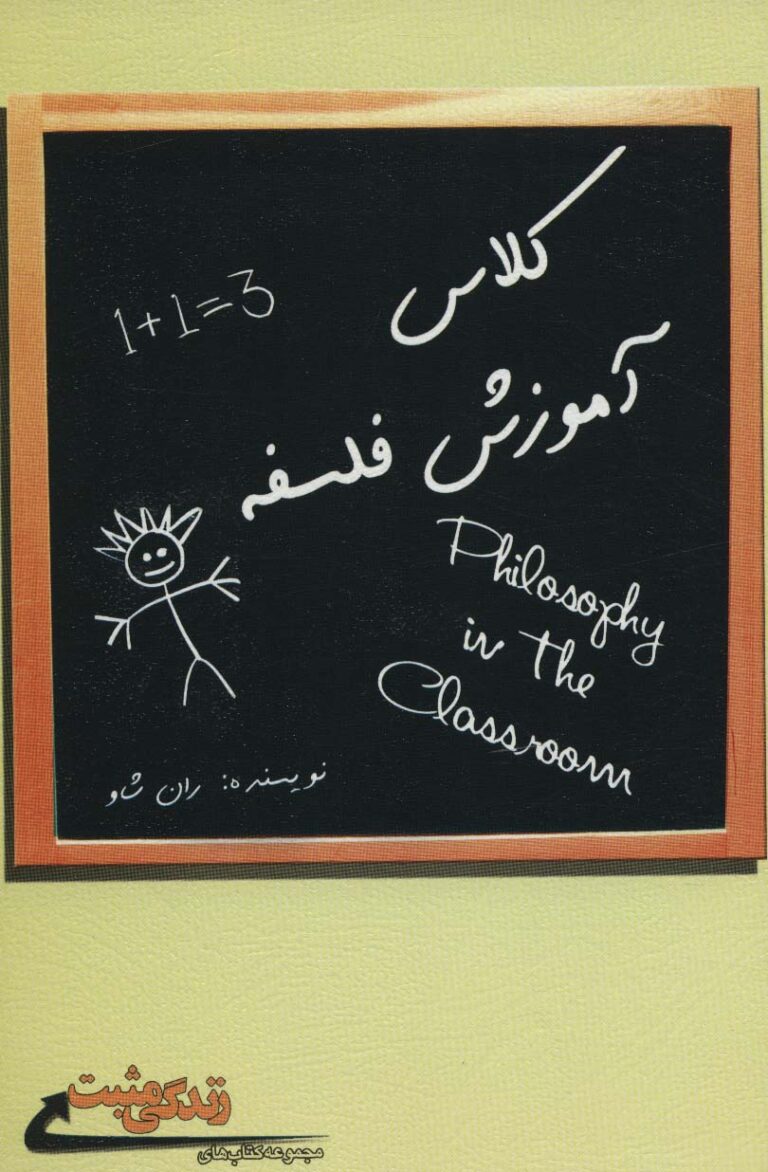 کلاس
1+1=3
آموزش فلسفه
Philosophy
in the
Classroom
نویسنده: ران شاو
زندگی مثبت
مجموعه کتاب‌های